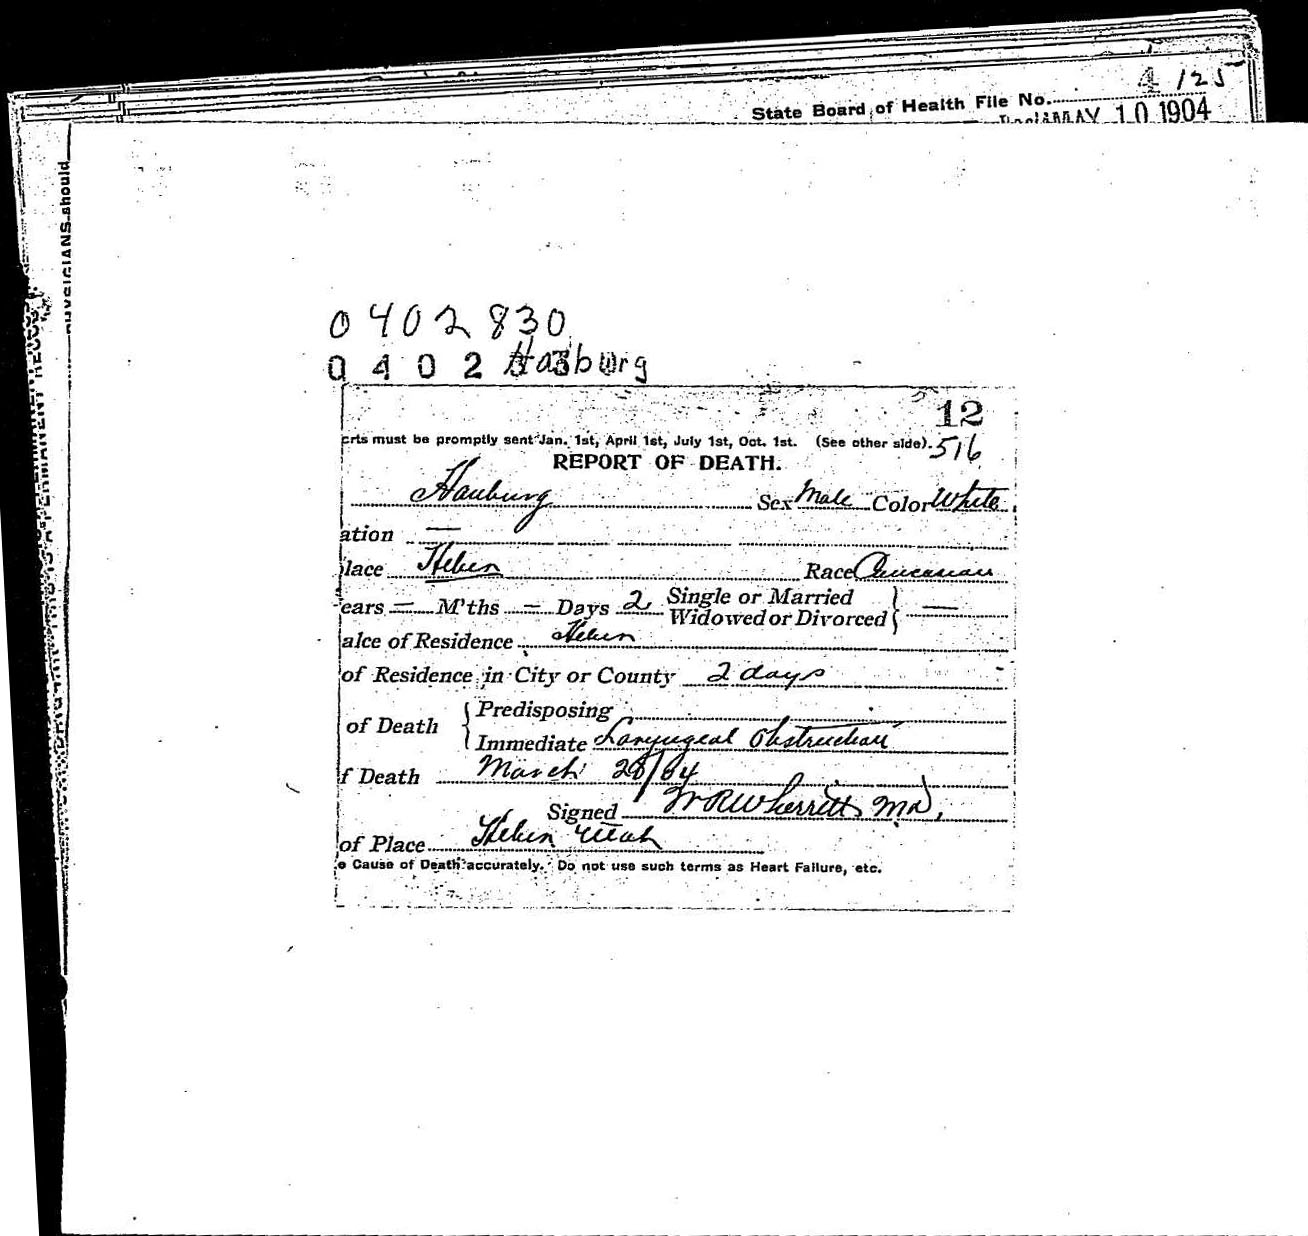 State Board of Health File No. 4 125
MAY 10 1904
PHYSICIANS should
0402830
0 4 0 2 Hasburg
12
erts must be promptly sent Jan. 1st, April 1st, July 1st, Oct. 1st. (See other side). 516
REPORT OF DEATH.
Hauburg Sex Male Color White
ation —
lace Heber Race Caucasian
ears — M'ths — Days 2 Single or Married
Widowed or Divorced —
alce of Residence Heber
of Residence in City or County 2 days
of Death Predisposing
Immediate Laryngeal Obstruction
f Death March 28/04
Signed W R Wherritt MD,
of Place Heber Utah
e Cause of Death accurately. Do not use such terms as Heart Failure, etc.